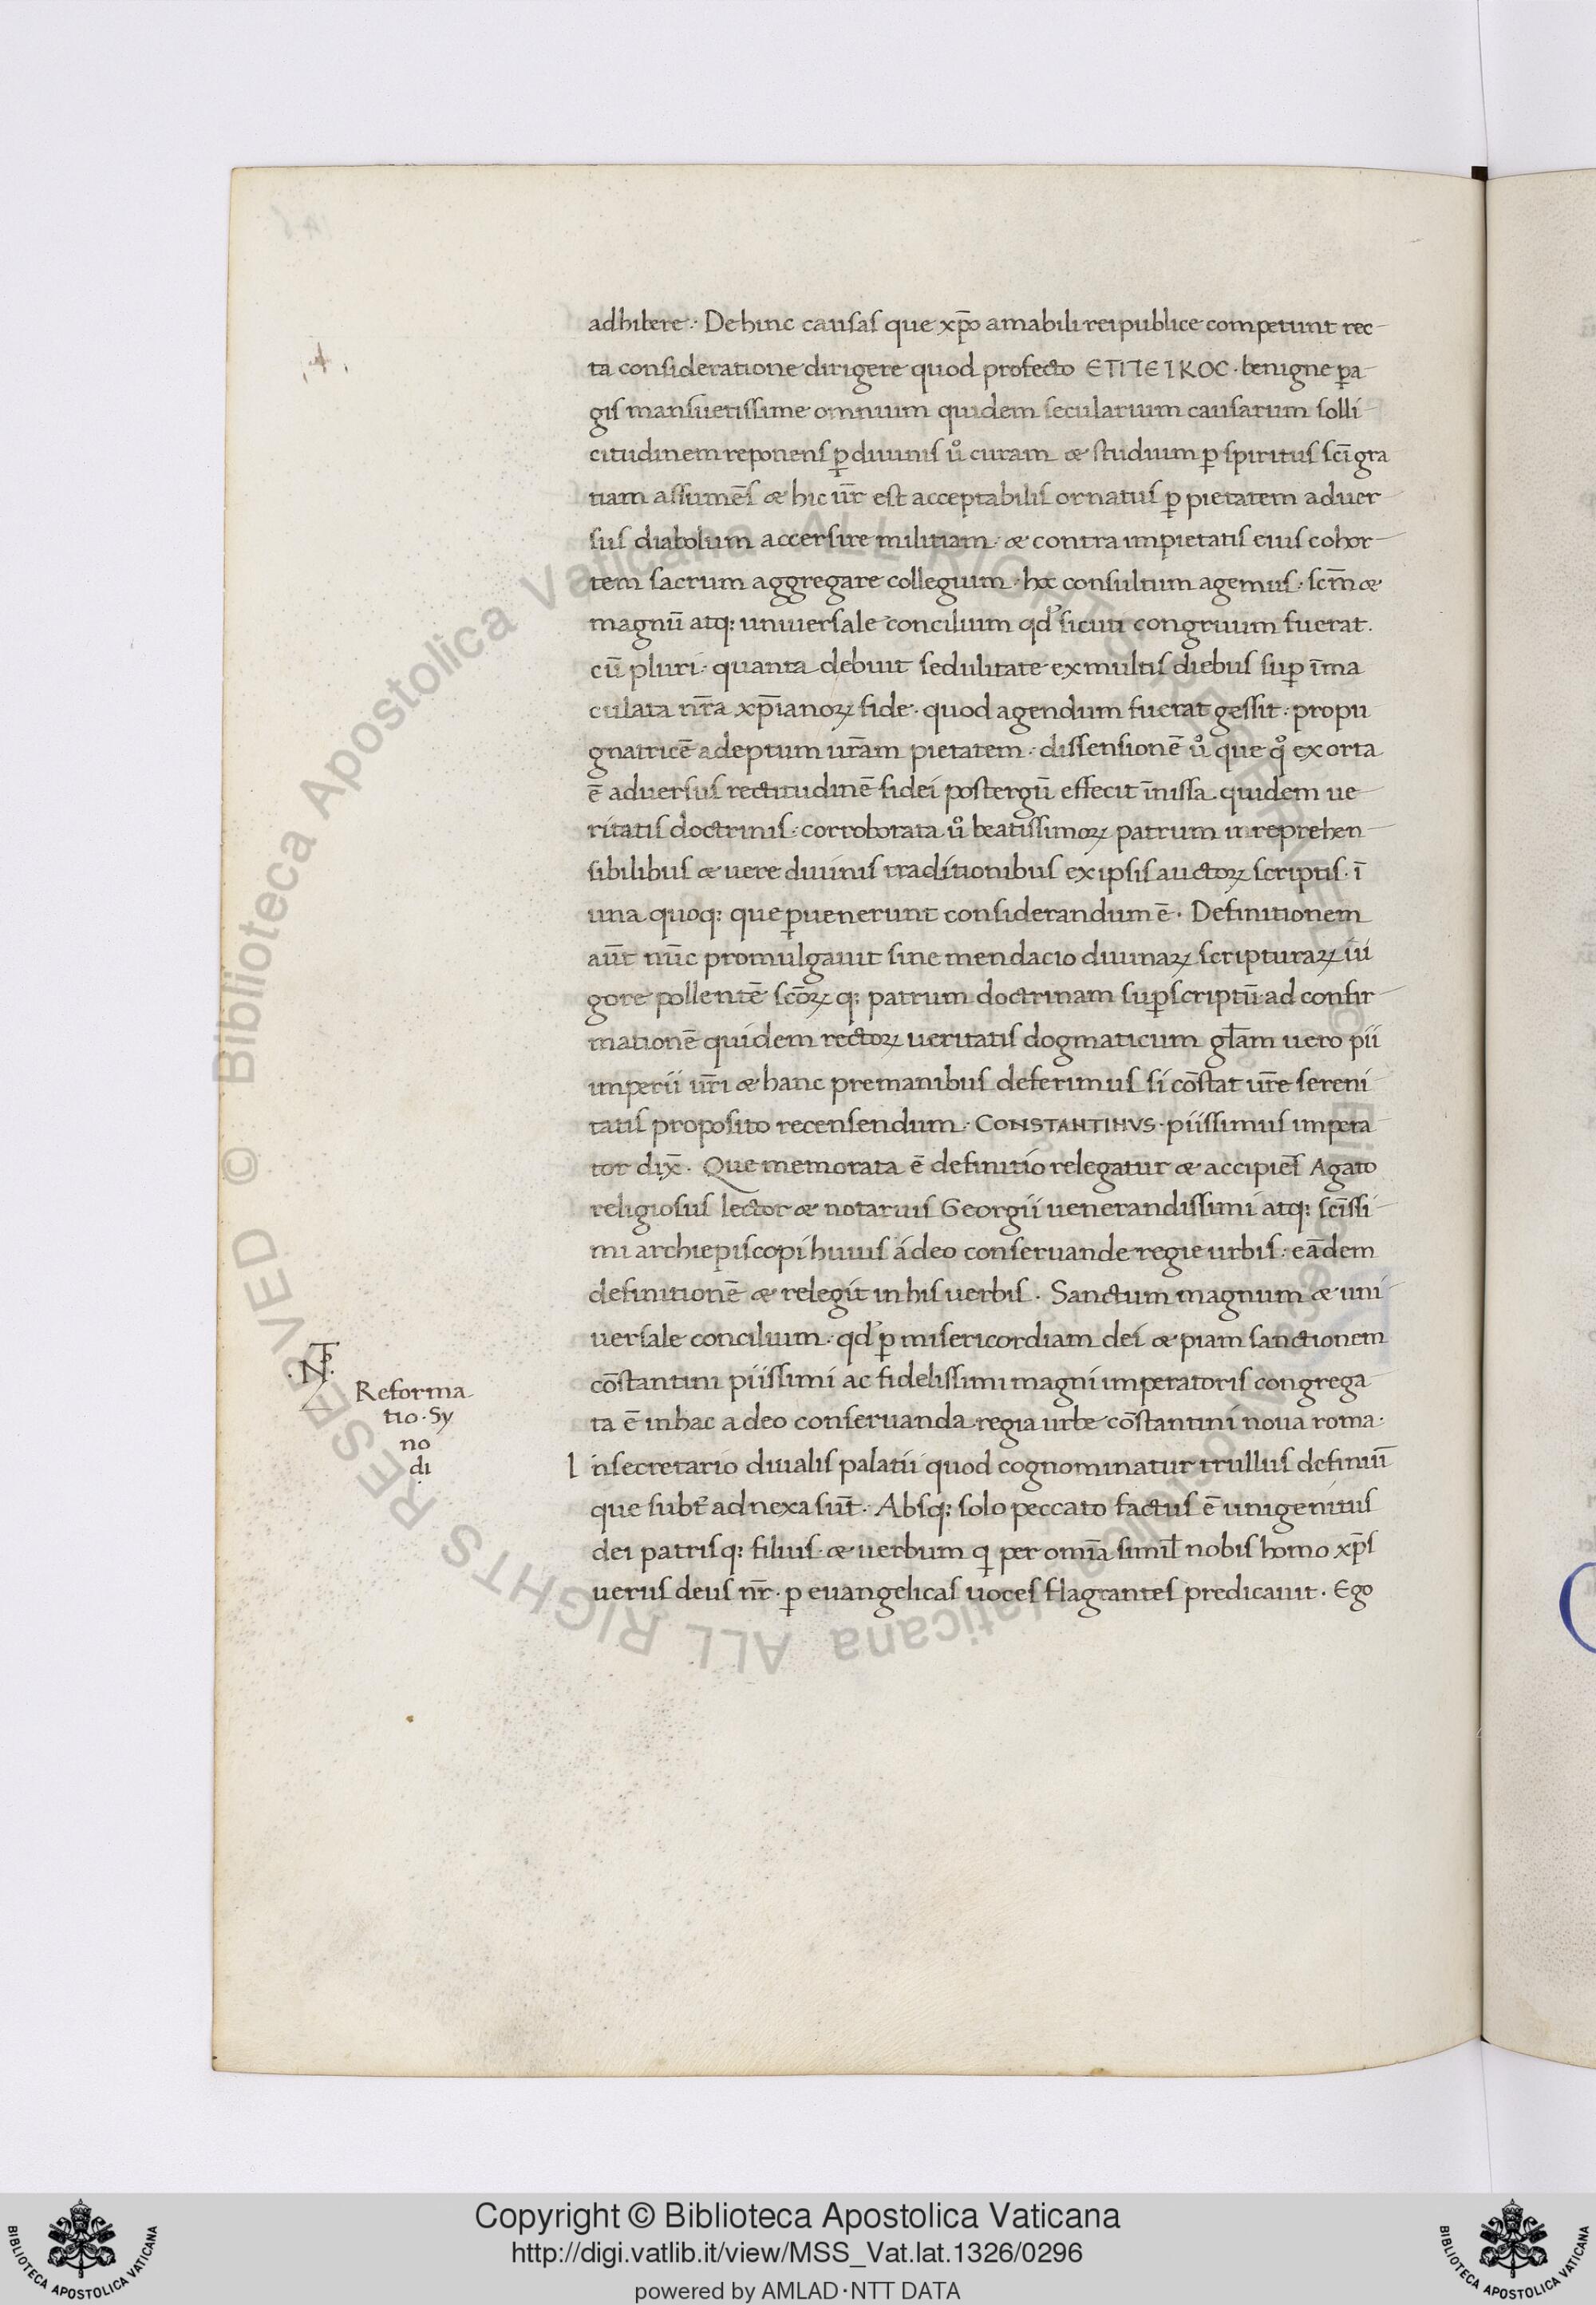 adhibere · Dehinc causas que xp̄o amabili reipublice competunt rec-
ta consideratione dirigere quod profecto ЄΠΙЄΙΚΟC · benigne ꝑa-
gis mansuetissime omnium quidem secularium causarum solli-
citudinem reponens ꝑ diuinis uº curam & studium ꝑ spiritus sc̄i gra
tiam assumēs & hic ur̄ est acceptabilis ornatus ꝑ pietatem aduer-
sus diabolum accersire militiam · & contra impietatis eius cohor-
tem sacrum aggregare collegium · hoc consultum agemus · sc̄m &
magnū atq; uniuersale concilium qd' sicuti congruum fuerat ·
cū pluri · quanta debuit sedulitate ex multis diebus suꝑ īma
culata nr̄a xp̄ianoꝝ fide · quod agendum fuerat gessit · propu
gnatricē adeptum ur̄am pietatem · dissensionē uº que qº exorta
ē aduersus rectitudinē fidei postergū effecit īnissa quidem ue-
ritatis doctrinis · corroborata uº beatissimoꝝ patrum irreprehen-
sibilibus & uere diuinis traditionibus ex ipsis auctoꝝ scriptis · ī
una quoq; que ꝑuenerunt considerandum ē · Definitionem
aūt nūc promulgauit sine mendacio diuinaꝝ scripturaꝝ ui
gore pollentē sc̄oꝝ q; patrum doctrinam suꝑscriptū ad confir-
mationē quidem rectoꝝ ueritatis dogmaticum gl̄am uero pii
imperii ur̄i & hanc premanibus deferimus si cōstat ur̄e sereni
tatis proposito recensendum · CONSTANTINVS · piissimus impera
tor dix̄ · Que memorata ē definitio relegatur & accipiēs Agato
religiosus lector & notarius Georgii uenerandissimi atq; sc̄issi-
mi archiepiscopi huius á deo conseruande regie urbis · eādem
definitionē & relegit in his uerbis · Sanctum magnum & uni-
uersale concilium · qd' ꝑ misericordiam dei & piam sanctionem
cōstantini piissimi ac fidelissimi magni imperatoris congrega
ta ē in hac a deo conseruanda regia urbe cōstantini noua roma ·
I nsecretario diualis palatii quod cognominatur trullus definiuī
que subt' adnexa sūt · Absq; solo peccato factus ē unigenitus
dei patrisq; filius · & uerbum q per omīa simil̄ nobis homo xp̄s
uerus deus nr̄ · ꝑ euangelicas uoces flagrantes predicauit · Ego
Reforma
tio · Sy
no
di
Copyright © Biblioteca Apostolica Vaticana
http://digi.vatlib.it/view/MSS_Vat.lat.1326/0296
powered by AMLAD·NTT DATA
BIBLIOTECA APOSTOLICA VATICANA
BIBLIOTECA APOSTOLICA VATICANA